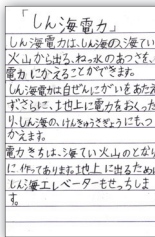 「しん海電力」
しん海電力は、しん海の、海てい
火山から出る、ねっ水のあつさを、
電力にかえることができます。
しん海電力は自ぜんにがいをあたえ
ずさらに、土地上に電力をおくった
り、しん海の、けんきゅうぎょうにもつ
かえます。
電力きちは、海てい火山のとなり
に作ってあります。地上に出るため
しん海エレベーターもせっちしま
す。